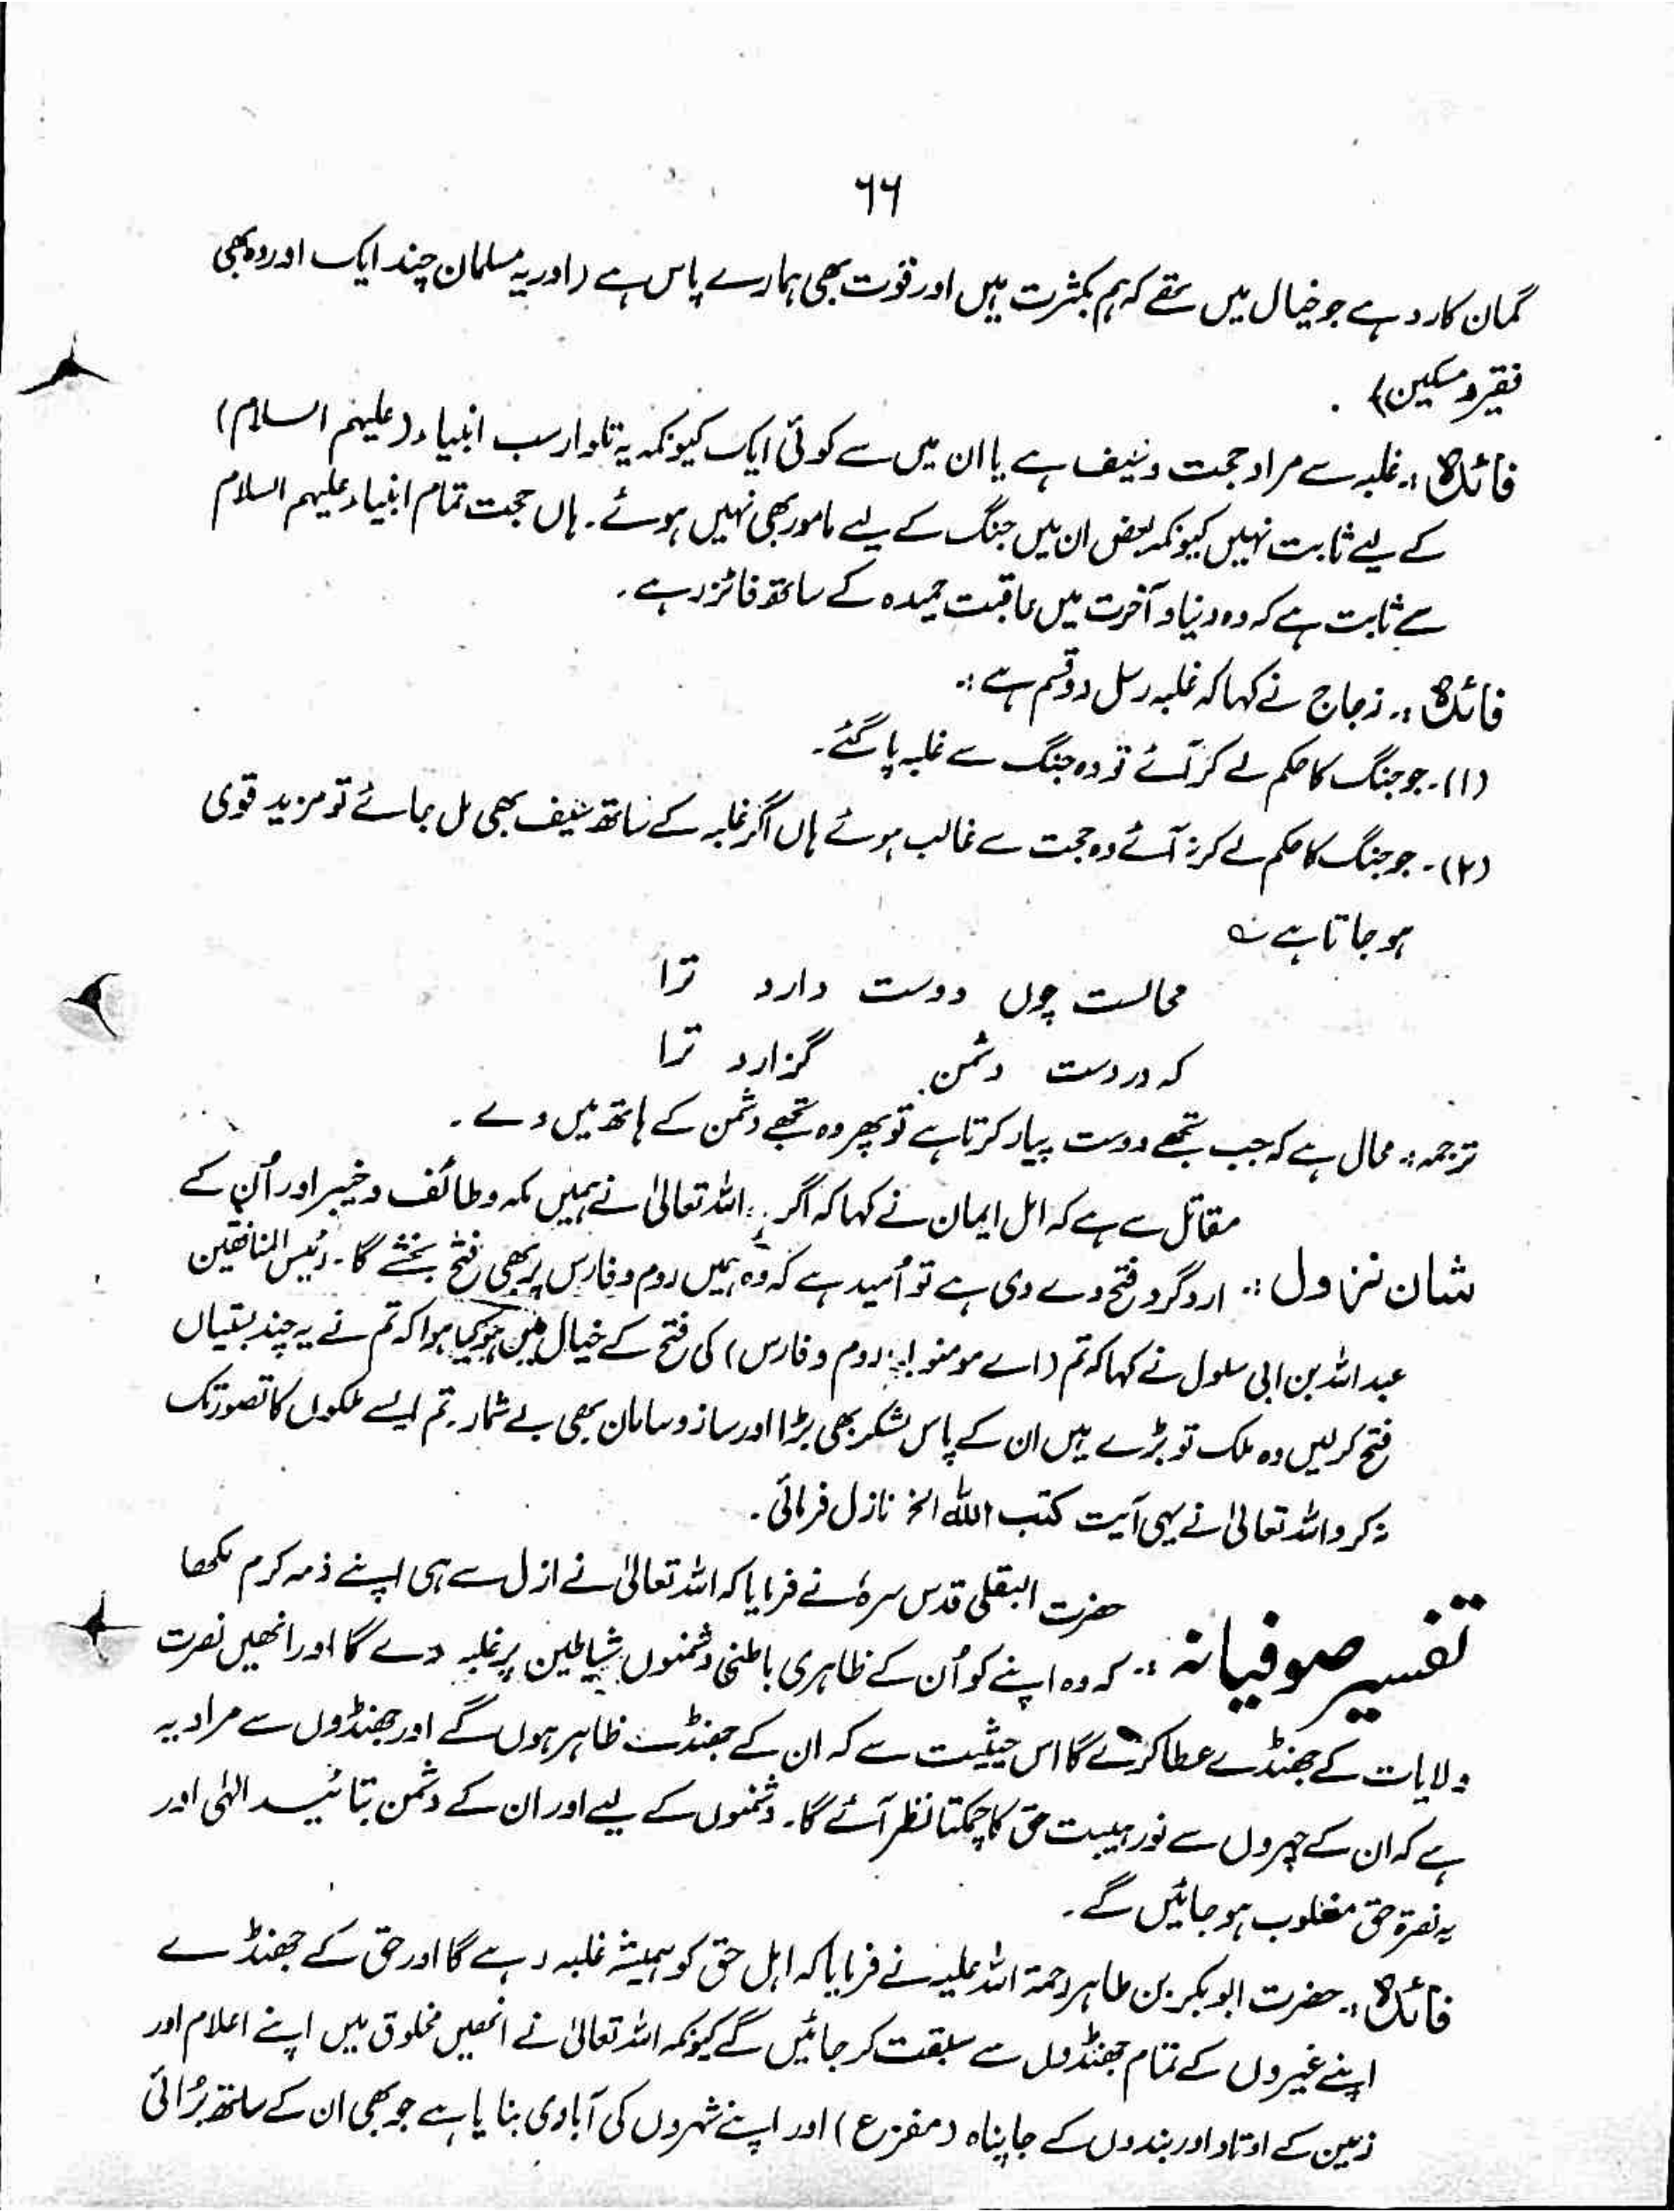 ۶۶
گمان کا رد ہے جو خیال میں تھے کہ ہم بکثرت ہیں اور قوت بھی ہمارے پاس ہے (اور یہ مسلمان چند ایک اور وہ بھی
فقیر و مسکین) ۔
فائدہ :۔ غلبہ سے مراد حجت و سیف ہے یا ان میں سے کوئی ایک کیونکہ یہ تلوار سب انبیاء (علیہم السلام)
کے لیے ثابت نہیں کیونکہ بعض ان میں جنگ کے لیے مامور بھی نہیں ہوئے۔ ہاں حجت تمام انبیاء علیہم السلام
سے ثابت ہے کہ وہ دنیا و آخرت میں عاقبت حمیدہ کے ساتھ فائز رہے۔
فائدہ :۔ زجاج نے کہا کہ غلبہ رسل دو قسم ہے :۔
(۱)۔ جو جنگ کا حکم لے کر آئے تو وہ جنگ سے غلبہ پا گئے۔
(۲)۔ جو جنگ کا حکم لے کر نہ آئے وہ حجت سے غالب ہوئے ہاں اگر غلبہ کے ساتھ سیف بھی مل جائے تو مزید قوی
ہو جاتا ہے ؎
محالست چوں دوست دارد ترا
کہ در دست دشمن گزارد ترا
ترجمہ :۔ محال ہے کہ جب تجھے دوست پیار کرتا ہے تو پھر وہ تجھے دشمن کے ہاتھ میں دے ۔
مقاتل سے ہے کہ اہل ایمان نے کہا کہ اگر اللہ تعالیٰ نے ہمیں مکہ و طائف و خیبر اور اُن کے
شان نزول :۔ ارد گرد فتح دے دی ہے تو اُمید ہے کہ وہ ہمیں روم و فارس پر بھی فتح بخشے گا۔ رئیس المنافقین
عبداللہ بن ابی سلول نے کہا کہ تم (اے مومنو! روم و فارس) کی فتح کے خیال میں ہو کیا ہوا کہ تم نے یہ چند بستیاں
فتح کر لیں وہ ملک تو بڑے ہیں ان کے پاس لشکر بھی بڑا اور ساز و سامان بھی بے شمار۔ تم ایسے ملکوں کا تصور تک
نہ کرو اللہ تعالیٰ نے یہی آیت کتب اللہ الخ نازل فرمائی ۔
حضرت البقلی قدس سرہٗ نے فرمایا کہ اللہ تعالیٰ نے ازل سے ہی اپنے ذمہ کرم لکھا
تفسیر صوفیانہ :۔ کہ وہ اپنے کو اُن کے ظاہری باطنی دشمنوں شیاطین پر غلبہ دے گا اور انھیں نصرت
ولایات کے جھنڈے عطا کرے گا اس حیثیت سے کہ ان کے جھنڈے ظاہر ہوں گے اور جھنڈوں سے مراد یہ
ہے کہ ان کے چہروں سے نور ہیبت حق کا چمکتا نظر آئے گا۔ دشمنوں کے لیے اور ان کے دشمن بتائید الٰہی اور
بہ نصرۃ حق مغلوب ہو جائیں گے ۔
فائدہ :۔ حضرت ابو بکر بن طاہر رحمۃ اللہ علیہ نے فرمایا کہ اہل حق کو ہمیشہ غلبہ رہے گا اور حق کے جھنڈے
اپنے غیروں کے تمام جھنڈوں سے سبقت کر جائیں گے کیونکہ اللہ تعالیٰ نے انھیں مخلوق میں اپنے اعلام اور
زمین کے اوتاد اور بندوں کے جا پناہ (مفزع) اور اپنے شہروں کی آبادی بنایا ہے جو بھی ان کے ساتھ بُرائی